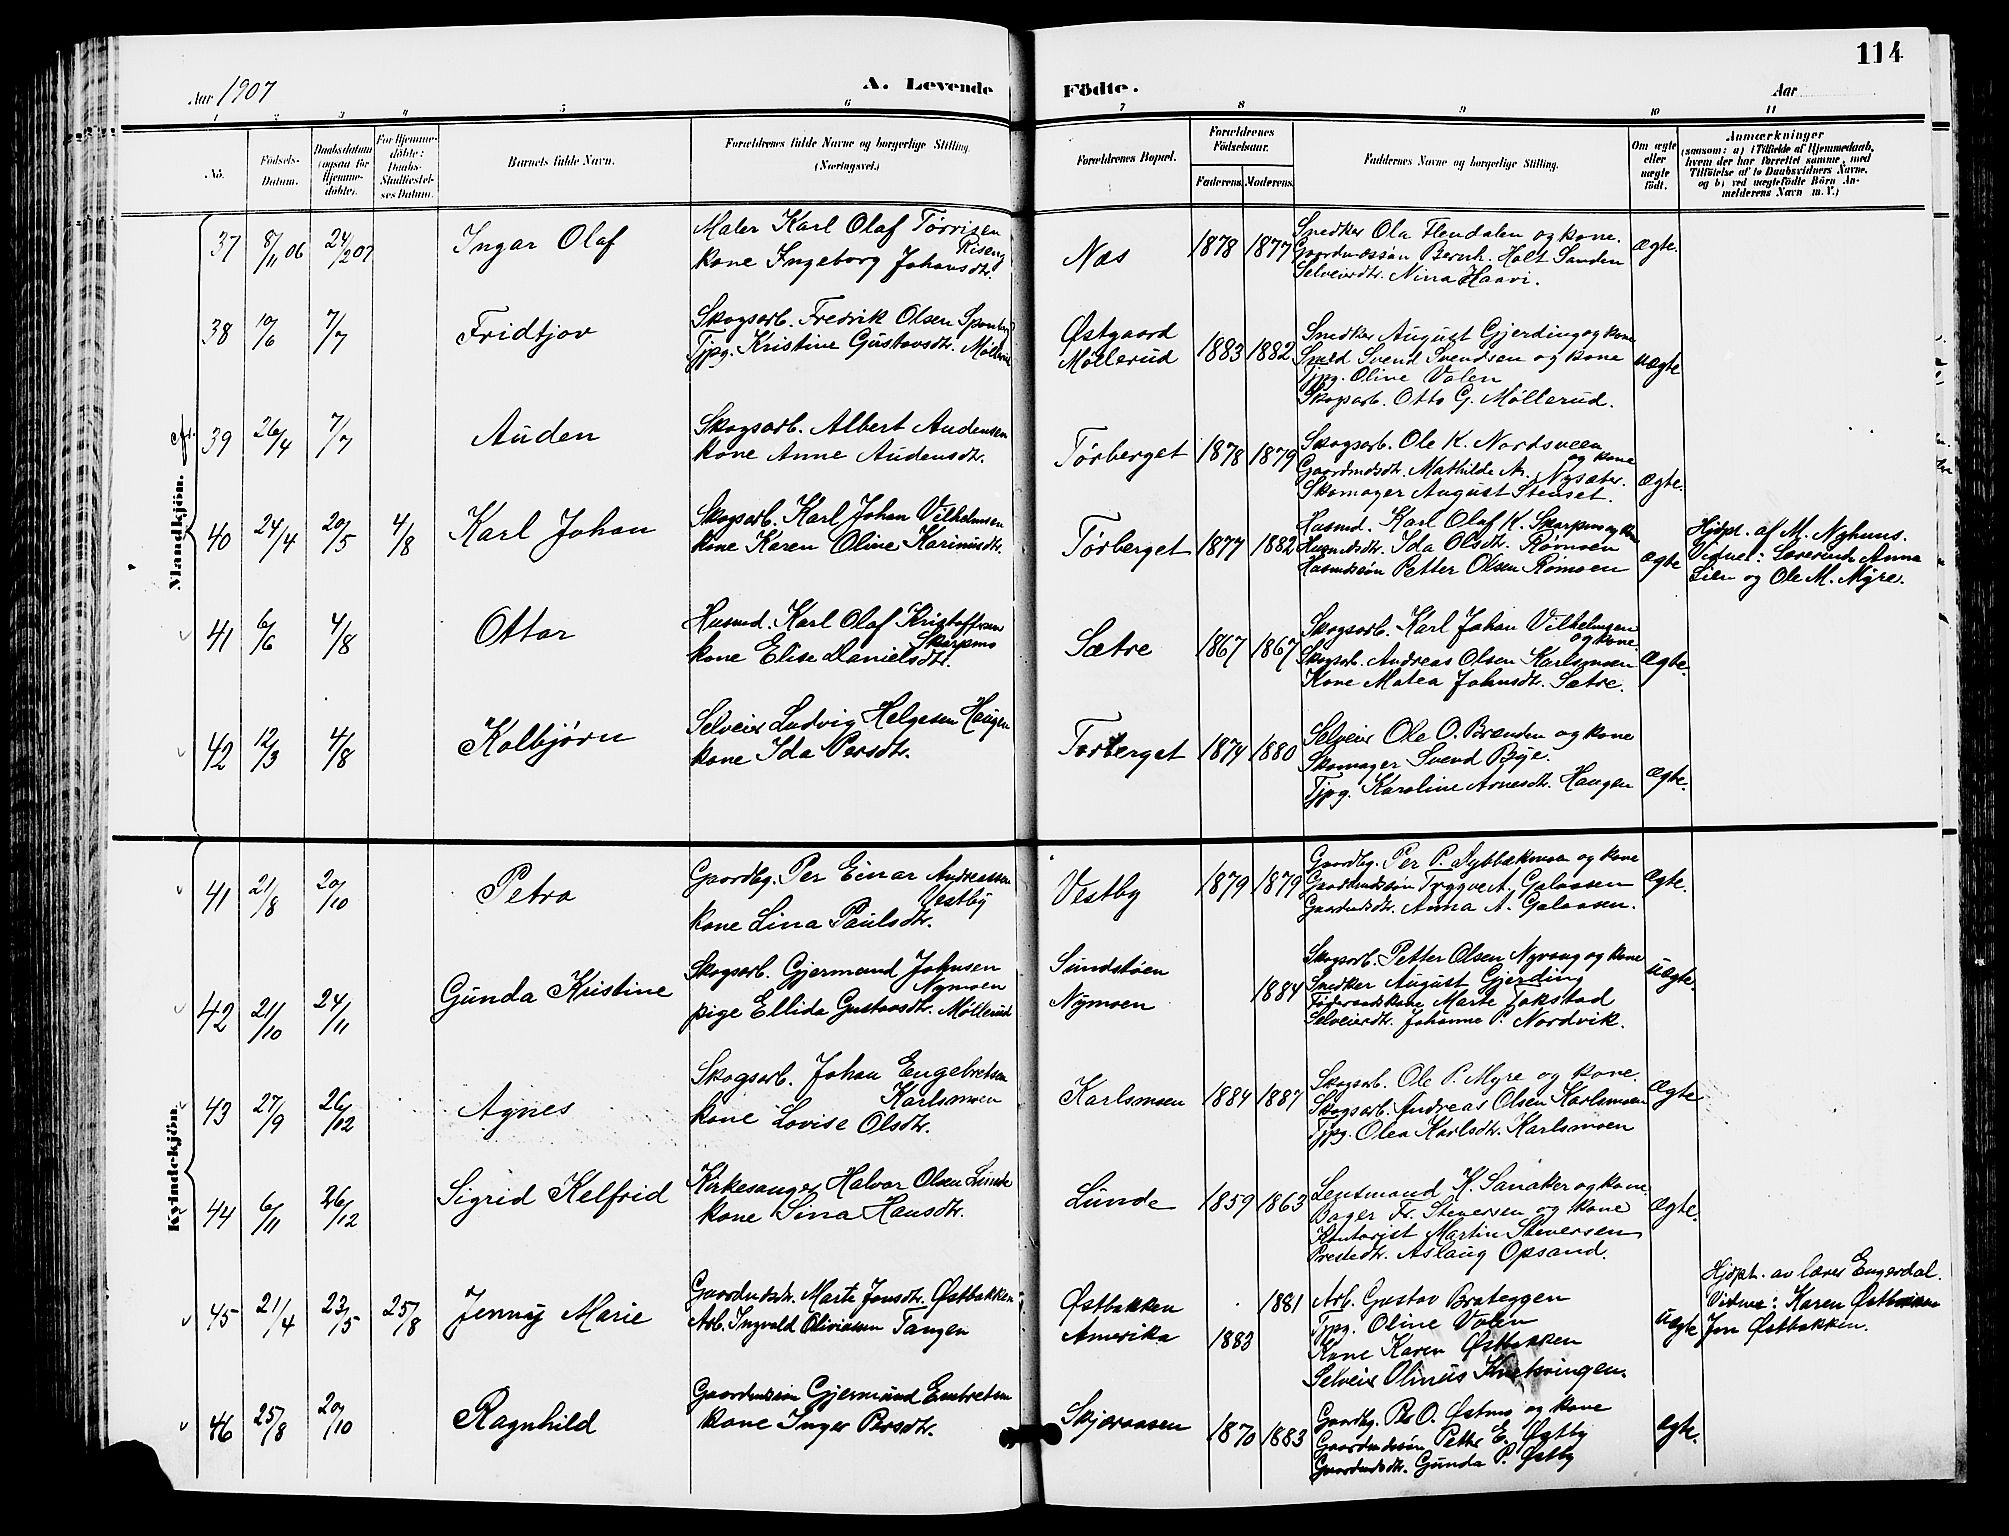 114
Aar 1907
A. Levende Födte.
Aar
1 2 3 4 5 6 7 8 9 10 11
No.
Födsels-Datum.
Daabsdatum (ogsaa for Hjemmedöbte).
For Hjemmedöbte: Daabs Stadfæstelses Datum.
Barnets fulde Navn.
Forældrenes fulde Navne og borgerlige Stilling (Næringsvei.)
Forældrenes Bopæl.
Forældrenes Födselsaar.
Faderens. Moderens.
Faddernes Navne og borgerlige Stilling.
Om ægte eller uægte födt.
Anmærkninger
(saasom: a) i Tilfælde af Hjemmedaab,
hvem der har forrettet samme, med
Tilföielse af to Daabsvidners Navne,
og b) ved uægtefödte Börn An-
melderens Navn m. V.)
Mandkjön.
37 8/11 06 24/2 07 Ingar Olaf
Maler Karl Olaf Tørrisen
Riseng
kone Ingeborg Johansdtr.
Næs 1878 1877
Snedker Ola Flendalen og kone.
Gaardmdssøn Bernh. Holt Sanden
Selveierdtr. Nina Haavi.
Ægte.
38 10/6 7/7 Fridtjov
Skogsarb. Fredrik Olsen
Tjpg. Kristine Gustavsdtr.
Østgaard
Møllerud 1883 1882
Snedker August Gjerding og kone
Smed Svend Svendsen og kone
Tjpg. Oline Volen
Skogsarb. Otto G. Møllerud.
uægte
39 26/4 7/7 Auden
Skogsarb. Albert Audensen
kone Anne Audensdtr.
Tørberget 1878 1879
Skogsarb. Ole K. Nordsveen
og kone
Gaardmdsdtr. Mathilde A. Nysæter.
Skomager August Stenset.
Ægte.
40 24/4 20/5 4/8 Karl Johan
Skogsarb. Karl Johan Vilhelmsen
kone Karen Oline Karinusdtr.
Tørberget 1877 1882
Husmd. Karl Olaf K. Skarpmo og kone
Husmdsdtr. Ida Olsdtr. Rømoen
Husmdssøn Petter Olsen Rømoen
Ægte
Hjdpt. af M. Nyhuus.
Vidner: Lærerinde Anna
Lien og Ole M. Myre.
41 6/6 4/8 Ottar
Husmd. Karl Olaf Kristoffersen
Skarpmo
kone Elise Danielsdtr.
Sætre 1867 1867
Skogsarb. Karl Johan Vilhelmsen
og kone.
Skogsarb. Andreas Olsen Karlsmoen
Kone Matea Johnsdtr. Sætre.
Ægte.
42 12/3 4/8 Kolbjørn
Selveier Ludvig Helgesen Haugen
kone Ida Persdtr.
Tørberget 1874 1880
Selveier Ole O. Brænden og kone
Skomager Svend Bye.
Tjpg. Karoline Arnesdtr. Haugen
Ægte.
Kvindekjön.
41 21/8 20/10 Petra
Gaardbg. Per Einar Andreassen
Vestby
kone Lina Paulsdtr.
Vestby 1879 1879
Gaardbg. Per P. Dybbækmoen og kone
Gaardmdssøn Trygve A. Galaasen
Gaardmdsdtr. Anna A. Galaasen.
Ægte.
42 21/10 24/11 Gunda Kristine
Skogsarb. Gjermund Johnsen
Nymoen
pige Ellida Gustavsdtr. Møllerud
Sundstøen
Nymoen 1884
Skogsarb. Petter Olsen Nyvang og kone
Snedker August Gjerding
Føderaadskone Marte Fokstad
Selveierdtr. Johanne P. Nordvik.
uægte.
43 27/9 26/12 Agnes
Skogsarb. Johan Engebretsen
Karlsmoen
kone Lovise Olsdtr.
Karlsmoen 1884 1887
Skogsarb. Ole P. Myre og kone.
Skogsarb. Andreas Olsen Karlsmoen
Tjpg. Olea Karlsdtr. Karlsmoen
Ægte
44 6/11 26/12 Sigrid Kelfrid
Kirkesanger Halvor Olsen Lunde
kone Sina Hansdtr.
Lunde 1859 1863
Lentmand K. Sanaker og kone.
Bager Fr. Steversen og kone
Kontorist Martin Steversen
Prestedtr. Aslaug Opsand.
Ægte.
45 21/4 23/5 25/8 Jenny Marie
Gaardmdsdtr. Marte Jonsdtr. Østbakken
Arb. Ingvald Oliviassen Tangen
Østbakken 1881
Amerika 1883
Arb. Gustav Brateggen
Tjpg. Oline Volen
Kone Karen Østbakken
Selveier Olinus
uægte
Hjdpt. av lærer Engerdal.
Vidner: Karen Østbakken
Jon Østbakken.
46 25/8 20/10 Ragnhild
Gaardmdssøn Gjermund Embretsen
kone Inger Persdtr.
Skjæraasen 1870 1883
Gaardbg. Per O. Østmo og kone
Gaardmdssøn Petter E. Østby
Gaardmdsdtr. Gunda P. Østby
Ægte.